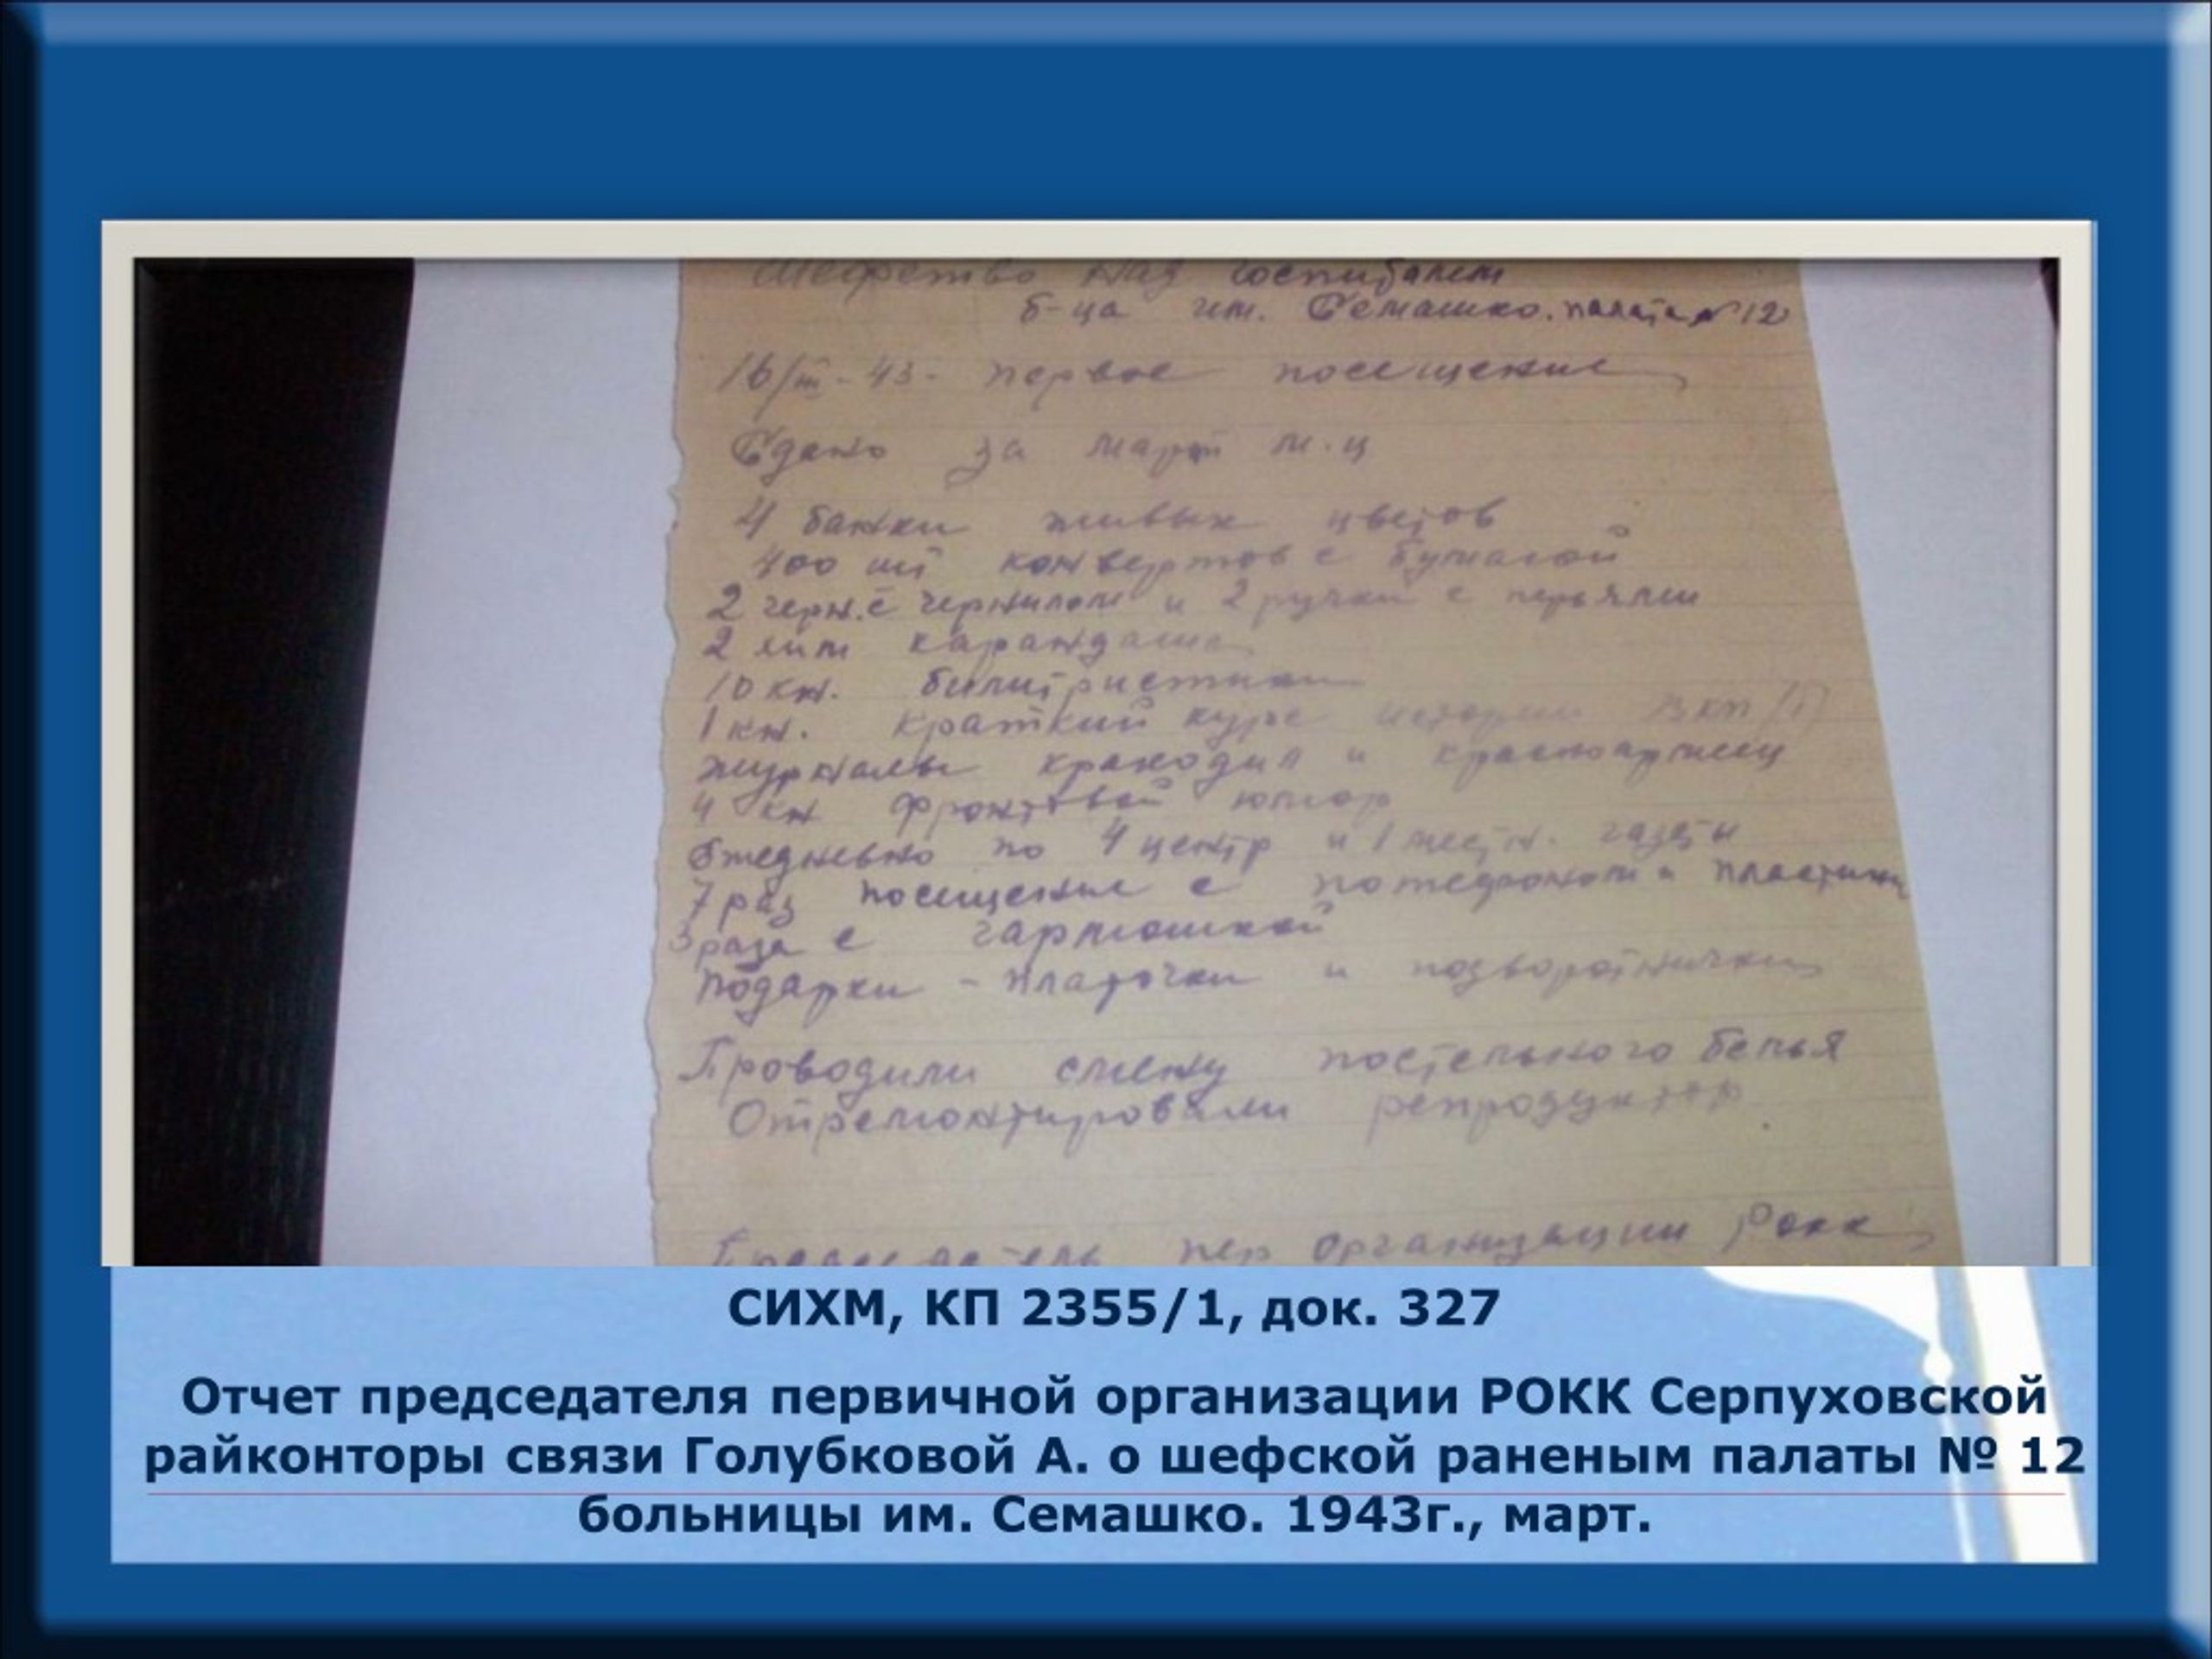 Шефство над госпиталем
б-ца им. Семашко. палата № 12
16/III - 43 - первое посещение
Сдано за март м-ц
4 банки живых цветов
400 шт конвертов с бумагой
2 черн. с чернилом и 2 ручки с перьями
2 хим карандаша
10 кн. билитристики
1 кн. краткий курс истории ВКП/б/
журналы кракодил и красноармеец
4 кн фронтовой юмор
Ежедневно по 4 центр и 1 местн. газеты
7 раз посещение с патефоном и пластинк
3 раза с гармошкой
Подарки - платочки и подворотнички
Проводили смену постельного белья
Отремонтировали репродуктор
Председатель пер организации РОКК
СИХМ, КП 2355/1, док. 327
Отчет председателя первичной организации РОКК Серпуховской
райконторы связи Голубковой А. о шефской раненым палаты № 12
больницы им. Семашко. 1943г., март.